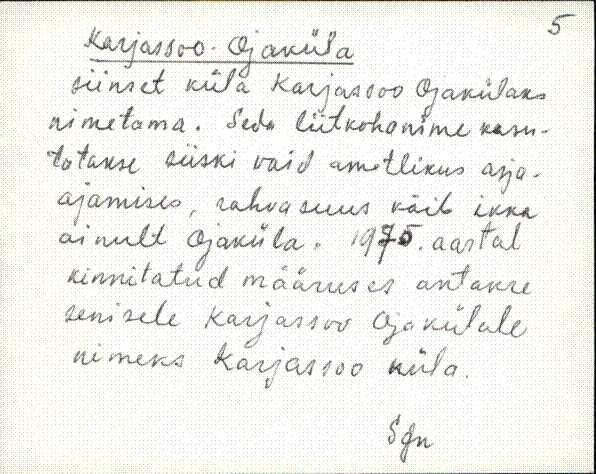 5
Karjassoo-Ojaküla
siinset küla Karjassoo Ojakülaks
nimetama. Seda liitkohanime kasu-
tatakse siiski vaid ametlikus asja-
ajamises, rahvasuus käib ikka
ainult Ojaküla. 1975. aastal
kinnitatud määruses antakse
senisele Karjassoo Ojakülale
nimeks Karjassoo küla.
Sgn